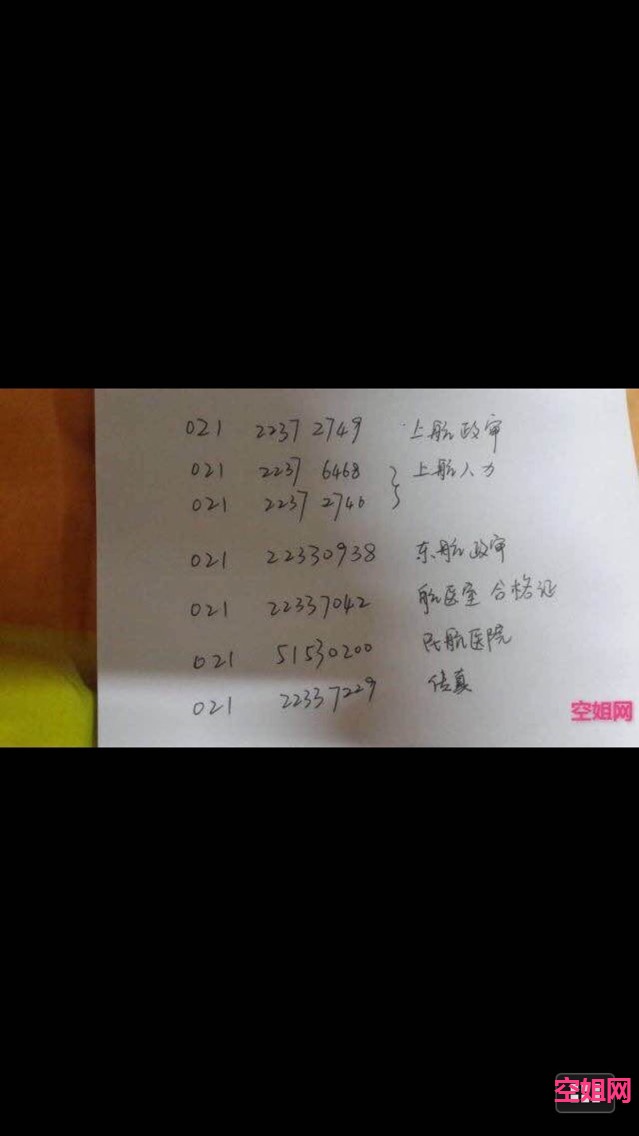 021 2237 2749 上航政审
021 2237 6468 } 上航人力
021 2237 2746
021 22330938 东航政审
021 22337042 航医室 合格证
021 51530200 民航医院
021 22337229 传真
空姐网
空姐网